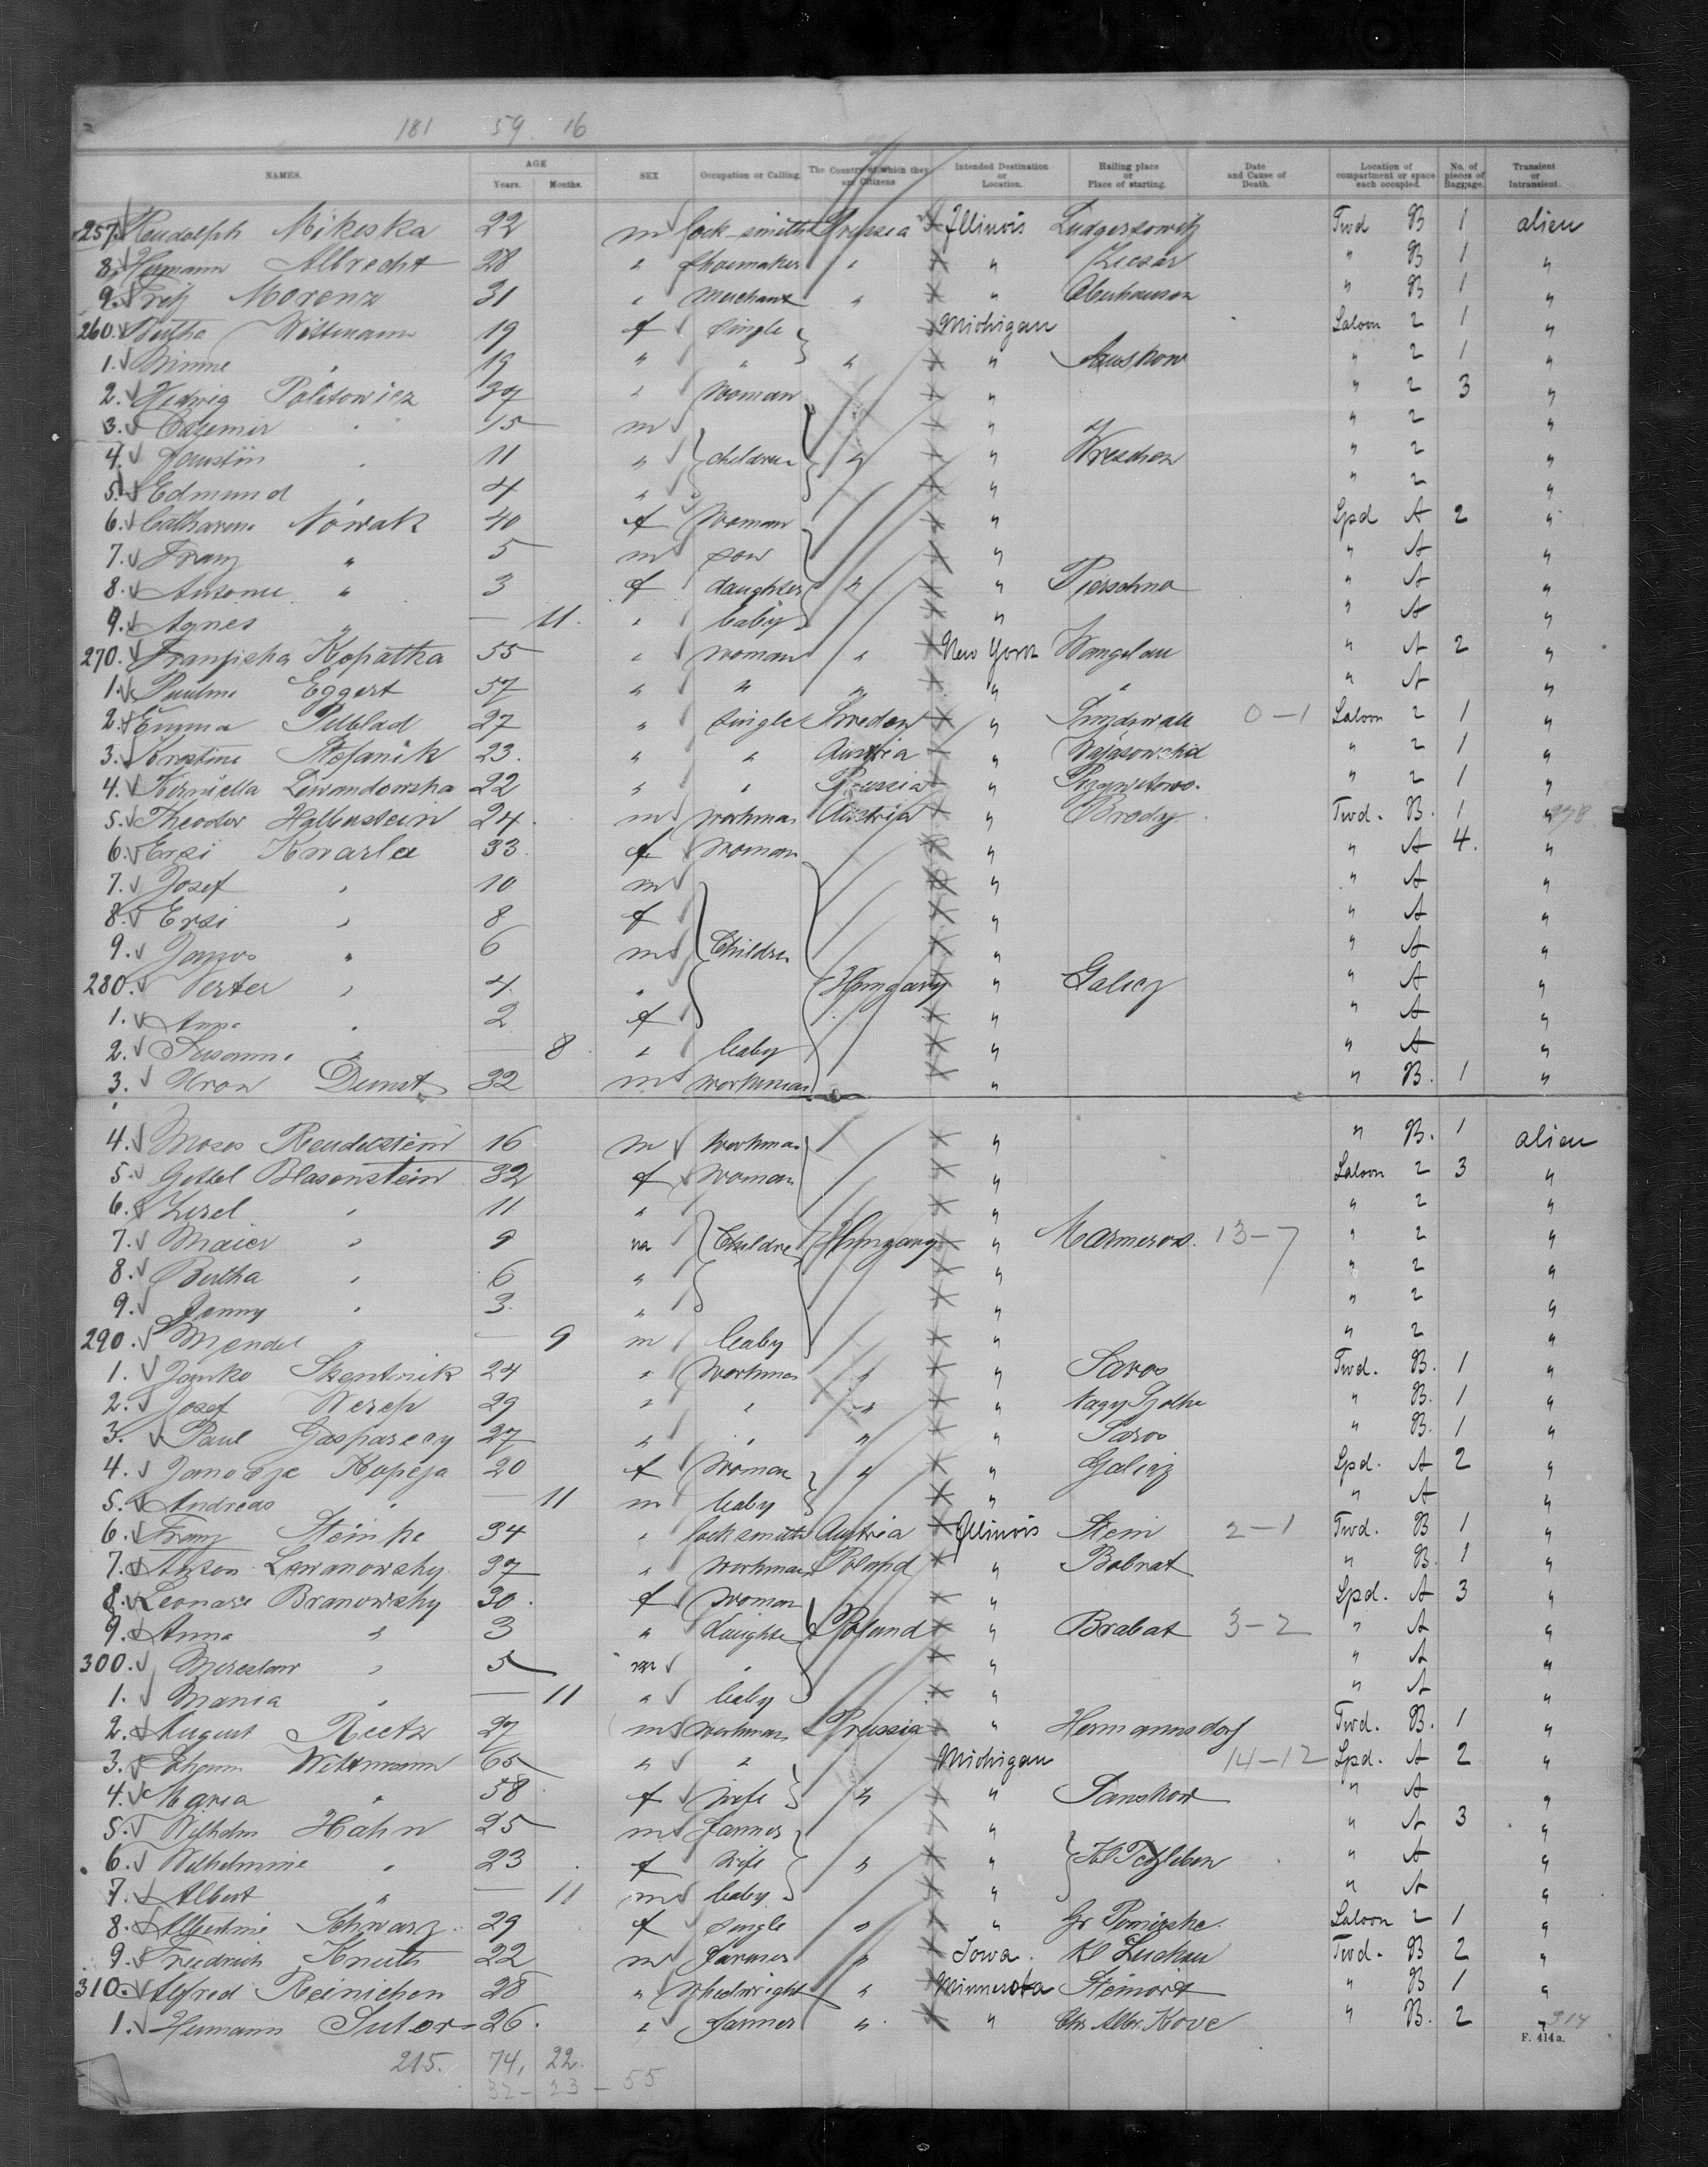 181 59. 16
NAMES. AGE Years. Months. SEX Occupation or Calling. The Country of which they are Citizens Intended Destination or Location. Hailing place or Place of starting. Date and Cause of Death. Location of compartment or space each occupied. No. of pieces of Baggage. Transient or Intransient.
257. Rudolph Mikeska 22 m lock-smith Prussia Illinois Ludgersowitz Twd B 1 alien
8. Hermann Albrecht 28 " shoemaker " " Ziesar " B 1 "
9. Fritz Morenz 31 " merchant " " Oberhausen " B 1 "
260. Bertha Wittmann 19 f single Michigan Saloon 2 1 "
1. Minne " 19 " " " " " 2 1 "
2. Hedwig Politowicz 37 " woman " " 2 3 "
3. Casemir " 15 m " " 2 "
4. Faustin " 11 " children " " Wreschen " 2 "
5. Edmund " 4 " " " 2 "
6. Catharine Nowak 40 f woman " Spd A 2 "
7. Franz " 5 m son " " A "
8. Antonie " 3 f daughter " " " A "
9. Agnes " — 11. " baby " A "
270. Franziska Kopatka 55 " woman " New York " A 2 "
1. Pauline Eggert 57 " " " " " " A "
2. Emma 27 " single Sweden " 0-1 Saloon 2 1 "
3. Kristine Stefanik 23. " " Austria " " 2 1 "
4. Lewandowska 22 " " Prussia " " 2 1 "
5. Theodor Halberstein 24. m workman Austria " Brody Twd. B. 1 "
6. Erzi Kwasla 33. f woman " " A 4. "
7. Josef " 10 m " " A "
8. Erzi " 8 f " " A "
9. Janos " 6 m Children " " A "
280. Verter " 4 " Hungary " Galicz " A "
1. Anna " 2 f " " A "
2. Susanne " — 8. " baby " " A "
3. Dunst 32 m workman " " B. 1 "
4. Moses 16 m workman " " B. 1 alien
5. Gottel Blasenstein 32 f woman " Saloon 2 3 "
6. " 11 " " " 2 "
7. Maier " 9 m Childre Hungary " Marmeros. 13-7 " 2 "
8. Bertha " 6 " " " 2 "
9. Jenny " 3. " " " 2 "
290. Mendel " — 9 m baby " " 2 "
1. Janko 24 " workman " " Saros Twd. B. 1 "
2. Josef 29 " " " " " B. 1 "
3. Paul Gasparecy 27 " " " " Saros " B. 1 "
4. Kopeja 20 f woman " " Galicz Spd. A 2 "
5. Andreas " — 11 m baby " " A "
6. Franz Steinke 34 " locksmith Austria Illinois Stein 2-1 Twd. B 1 "
7. Anton Lewanowsky 37 " workman Poland " Bobrat " B. 1 "
8. Branowsky 30. f woman " Spd. A 3 "
9. Anna " 3 " daughte Poland " Brabat 3-2 " A "
300. " 5 m " " " A "
1. Mania " — 11 " baby " " A "
2. August Reetz 27 m workman Prussia " Hermannsdorf Twd. B. 1 "
3. Johann Wittmann 65 " " Michigan 14-12 Spd. A 2 "
4. Maria " 58. f wife " " " A "
5. Wilhelm Hahn 25 m farmer " " A 3 "
6. Wilhelmine " 23 f wife " " Kl Tetzleben " A "
7. Albert " — 11 m baby " " A "
8. Albertine Schwarz 29 f single " " Saloon 2 1 "
9. Friedrich Knuth 22 m farmer " Iowa. Kl Twd. B 2 "
310. Alfred Reinichen 28 " wheelwright " Minnesota " B 1 "
1. Hermann Suter 26. " farmer " " " B. 2 " 314
F. 414a.
215. 74, 22.
32 - 23 - 55